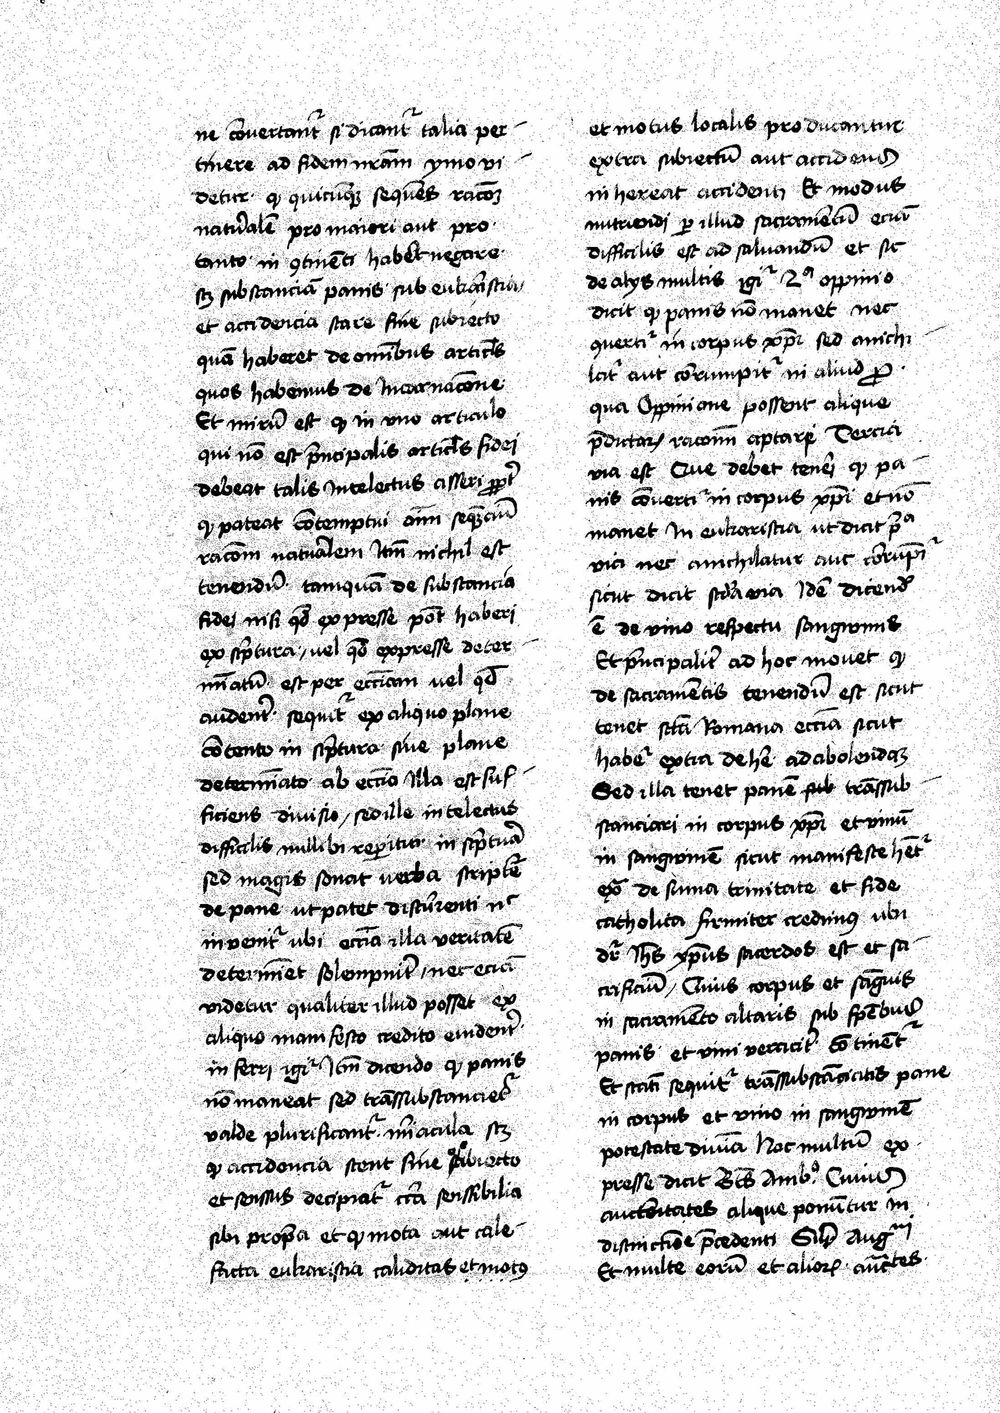 ne co̅uertant᷑ si dicant᷑ talia per-
tinere ad fidem nr̅am ymo vi-
detur q̨ quicu̅q̨ꝫ seque̅s raco̅ꝫ
natu̅rale̅ pro maiori aut pro
tanto in ꝯtine̅ti habe̅t negare
scꝫ substancia̅ panis sub eukaristia
et accidencia stare sine subiecto
qua̅ haberet de omi̅bus articl̅s
quos habemus de Incarnaco̅ne
Et miru̅ est q̨ in vno articulo
qui no̅ est p̅ncipalis articl̅s fidei
debeat talis Intelectus asseri ꝓpt̅
q̨ pateat co̅temptui om̅i seque̅ciu̅
raco̅m natu̅alem Itm̅ nichil est
tenendu̅ tamqua̅ de substancia
fidei nisi qd̅ expresse po̅t haberi
ex sc̅ptura / vel qd̅ expresse deter-
mi̅atu̅ est per ecc̅iam vel qd̅
euident̅ sequit᷑ ex aliquo plane
co̅tento in sc̅ptura siue plane
determi̅ato ab ecc̅ia Illa est suf-
ficiens diuisio / sed ille intelectus
difficilis nullibi reperitur in sc̅ptura̅
sed magis sonat verba scripte̅
de pane ut patet discur̅enti nc̅
inuenit᷑ ubi ecc̅ia illa veritate̅
determi̅et solempnit̅ / nec ecia̅
videtur qualiter illud posset ex
aliquo manifesto credito euident̅
in ferri igi᷑ Itm̅ dicendo q̨ panis
no̅ maneat sed tra̅ssubstanciet᷑
valde plurificant᷑ mi̅acula scꝫ
q̨ accidencia stent sine subiecto
et sensus decipiat᷑ circa̅ sensibilia
sibi propr̅a et q̨ mota aut cale-
facta eukaristia caliditas et motus
et motus localis producantur
extra subiectu̅ aut accidens
in hereat accidenti Et modus
nutriendi ꝑ illud sacrame̅tu̅ ecia̅
difficilis est ad saluandu̅ et sic
de alys multis igi᷑ 2ᵃ oppinio
dicit q̨ panis no̅ manet nec
ꝯuerti᷑ in corpus xp̅i sed anichi-
lat᷑ aut cor̅umpit᷑ in aliud ꝓ
qua Oppinione possent alique
p̅dictaꝝ racoi̅m aptari Tercia
via est Que debet teneri q̨ pa-
nis co̅uerti᷑ in corpus xp̅i et no̅
manet In eukaristia ut dicit p̅ᵃ
via nec anichilatur aut cor̅upi̅᷑
sicut dicit scd̅a via Ide̅ dicend̅
e̅ de vino respectu sangwinis
Et p̅ncipalit̅ ad hoc mouet q̨
de sacrame̅tis tenendu̅ est sicut
tenet sc̅ta Romana ecc̅ia sicut
habe᷑ extra de he̅ ad abolendaꝫ
Sed illa tenet pane̅ sub tra̅ssub-
stanciari in corpus xp̅i et vinu̅
in sangwine̅ sicut manifeste he̅t᷑
ex̅ de su̅ma trinitate et fide
catholica firmiter credimus ubi
dr̅ Ihs̅ xp̅us sacerdos est et sa-
crificiu̅ / Cuius corpus et sa̅guis
in sacrame̅to altaris sub sp̅ebus
panis et vini veracit̅ co̅tinent᷑
Et stati̅ sequit᷑ tra̅ssubsta̅ciatis pane
in corpus et vino in sangwine̅
potestate diui̅a Hoc multu̅ ex-
presse dicit Bt̅s Amb̅ᵒ Cuius
auctoritates alique ponu̅tur in
distinctio̅e p̅cedenti Sil̅r Augᵐⁱ
Et multe eoru̅ et alioꝝ auc̅tes